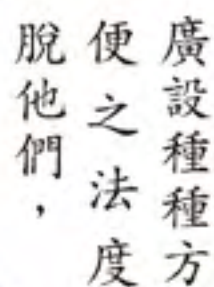 廣設種種方
便之法度
脫他們，